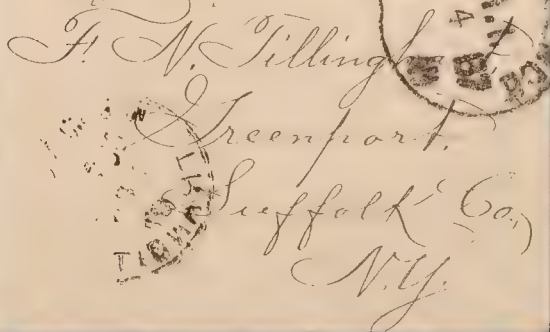 F. N. Tillinghast,
Greenport.
Suffolk Co.,
N.Y.
4